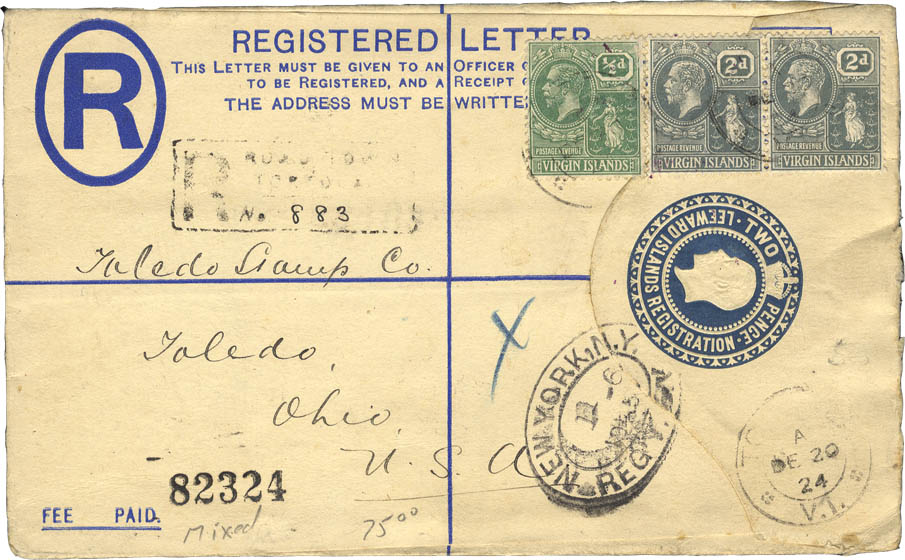 R
REGISTERED LETTER
THIS LETTER MUST BE GIVEN TO AN OFFICER
TO BE REGISTERED, AND A RECEIPT
THE ADDRESS MUST BE WRITTE
½d
POSTAGE & REVENUE
VIRGIN ISLANDS
2d
POSTAGE REVENUE
VIRGIN ISLANDS
2d
POSTAGE & REVENUE
VIRGIN ISLANDS
R
ROAD TOWN
TORTOLA
No. 883
LEEWARD ISLANDS REGISTRATION · TWO PENCE ·
Toledo Stamp Co.
Toledo,
Ohio,
U. S. A
X
NEW YORK, N.Y.
REG'Y.
A
DE 20
24
V.I.
82324
FEE PAID.
Mixed
75⁰⁰